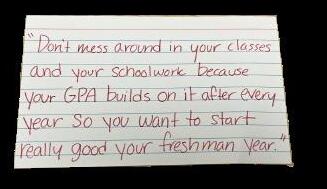 "Don't mess around in your classes
and your schoolwork because
your GPA builds on it after every
year so you want to start
really good your freshman year."